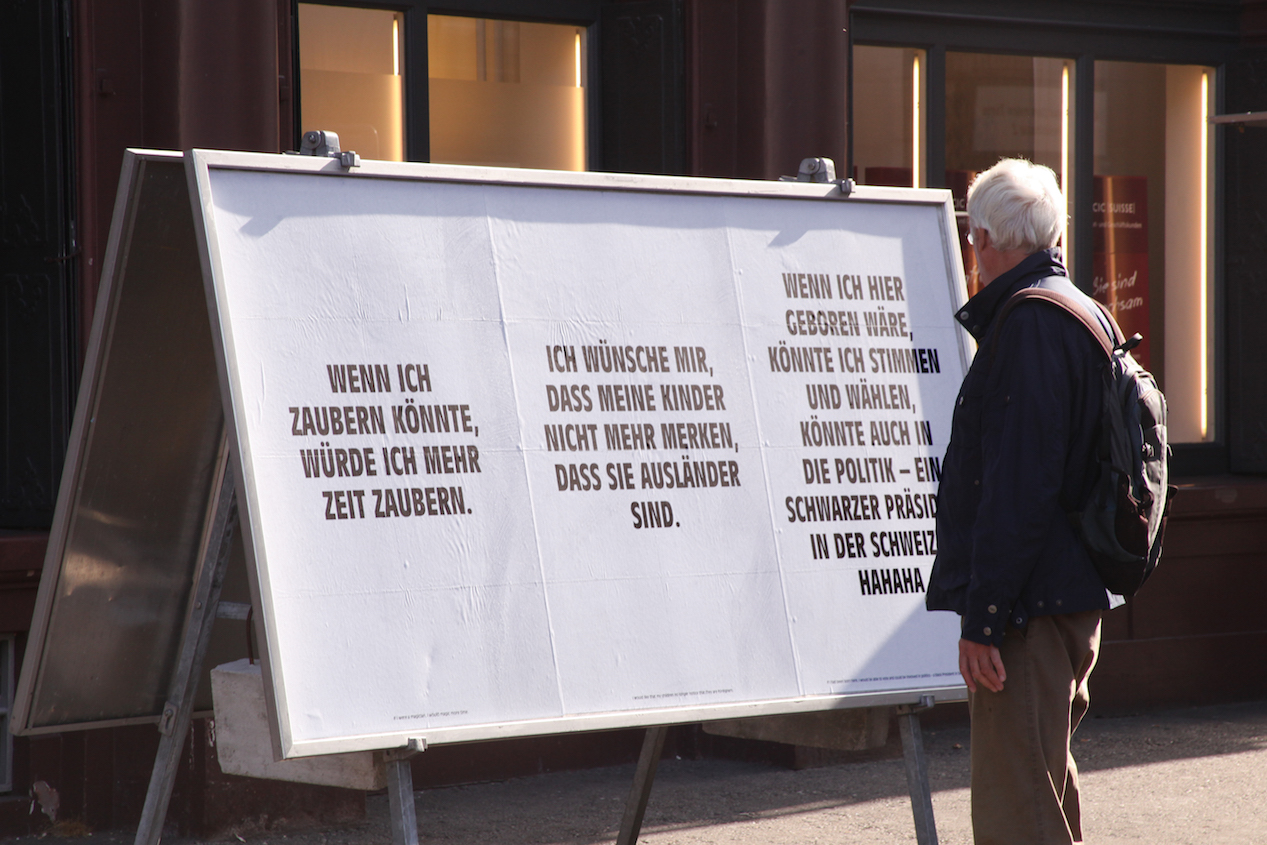 WENN ICH
ZAUBERN KÖNNTE,
WÜRDE ICH MEHR
ZEIT ZAUBERN.
ICH WÜNSCHE MIR,
DASS MEINE KINDER
NICHT MEHR MERKEN,
DASS SIE AUSLÄNDER
SIND.
WENN ICH HIER
GEBOREN WÄRE,
KÖNNTE ICH STIMMEN
UND WÄHLEN,
KÖNNTE AUCH IN
DIE POLITIK – EIN
SCHWARZER PRÄSID
IN DER SCHWEIZ
HAHAHA
CIC SUISSE
Sie sind